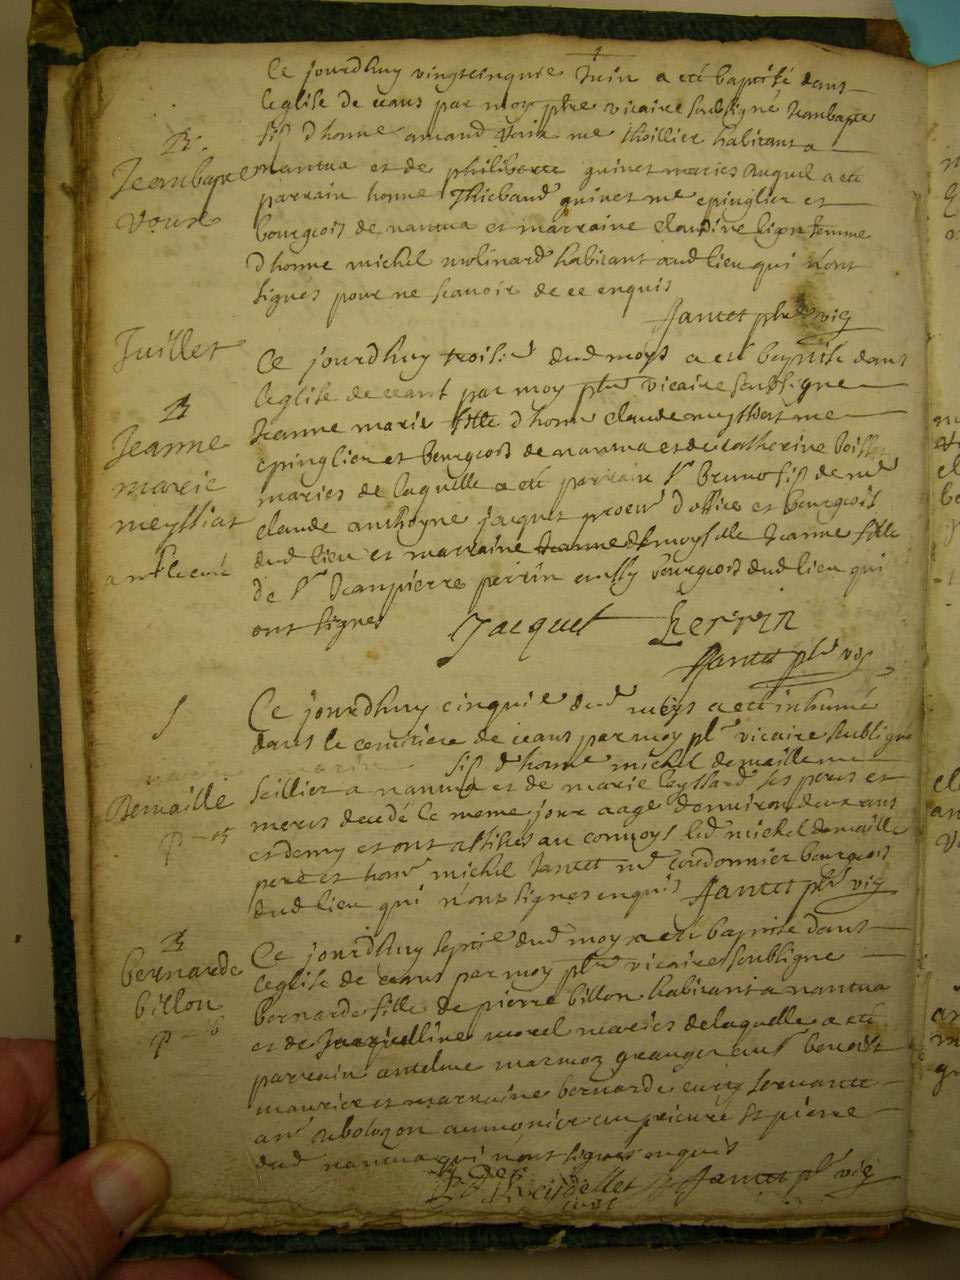 Ce jourdhuy vingtcinquie Juin a eté baptisé dans
leglise de ceans par moy pbre vicaire soubsigné Jeanbapte
B.
fils dhonne amand Voux me thoillier habitant a
Jeanbapte
nantua et de philiberte guinet maries auquel a eté
Voux
parrain honne Thiebaud guinet me epinglier et
bourgeois de nantua et marraine claudine lion femme
dhonne michel molinard habitant aud lieu qui n'ont
signés pour ne scavoir de ce enquis
Jantet pbre vic
Juillet
Ce jourdhuy troisie dud moys a eté baptisée dans
leglise de ceant par moy pbre vicaire soubsigne
B
Jeanne marie fille dhonne claude meyssiat me
Jeanne
epinglier et bourgeois de nantua et de catherine
marie
maries de laquelle a eté parrain sr Bruno fils de me
meyssiat
claude anthoyne jacquet procur d'office et bourgeois
dud lieu et marraine demoyselle Jeanne fille
de sr Jeanpierre perrin aussy bourgeois dud lieu qui
ont signe
Jacquet perrin
Jantet pbre vic
S
Ce jourdhuy cinquie dud moys a eté inhumé
dans le cemitiere de ceans par moy pbre vicaire soubsigne
fils dhonne michel demaille me
Demaille
sellier a nantua et de marie leyssard ses peres et
meres decedé le meme jour aagé denviron deux ans
et demy et ont assistés au convoys led michel demaille
pere et honne michel Jantet me cordonnier bourgeois
dud lieu qui n'ont signes enquis Jantet pbre vic
B
Ce jourdhuy septie dud moys a eté baptisée dans
bernarde
leglise de ceans par moy pbre vicaire soubsigne
billon
bernarde fille de pierre billon habitant a nantua
et de morel maries de laquelle a eté
parrain antelme marmoz granger au sr benoist
maurier et marraine bernarde cuiry servante
a mr aumonier au prieuré st pierre
dud nantua qui n'ont signes enquis
Jantet pbre vic